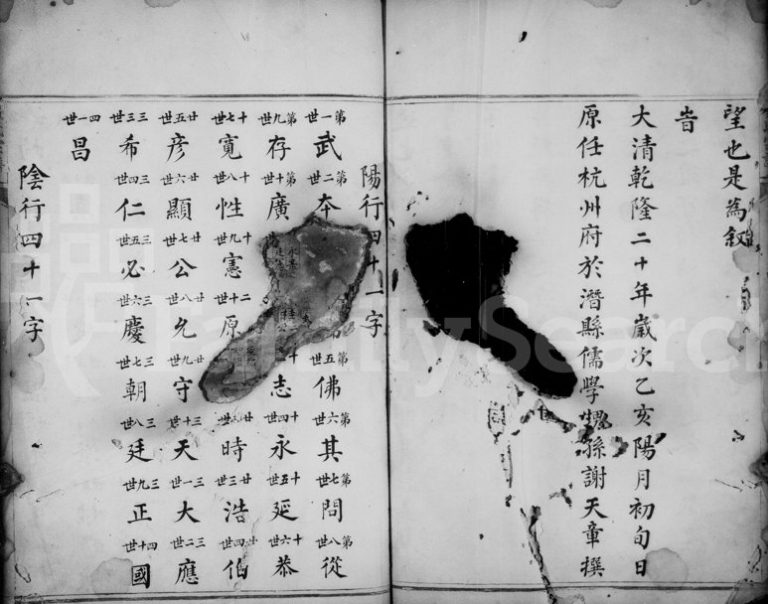 望也是為叙
旹
大清乾隆二十年歲次乙亥陽月初旬日
原任杭州府於潛縣儒學 孫謝天章撰
陽行四十一字
第一世 武 第二世 本 第五世 佛 第六世 其 第七世 問 第八世 從
第九世 存 第十世 廣 志 十四世 永 十五世 延 十六世 恭
十七世 寬 十八世 性 十九世 憲 二十世 原 時 廿三世 浩 廿四世 伯
廿五世 彥 廿六世 顯 廿七世 公 廿八世 允 廿九世 守 三十世 天 三一世 大 三二世 應
三三世 希 三四世 仁 三五世 必 三六世 慶 三七世 朝 三八世 廷 三九世 正 四十世 國
四一世 昌
陰行四十一字
FamilySearch